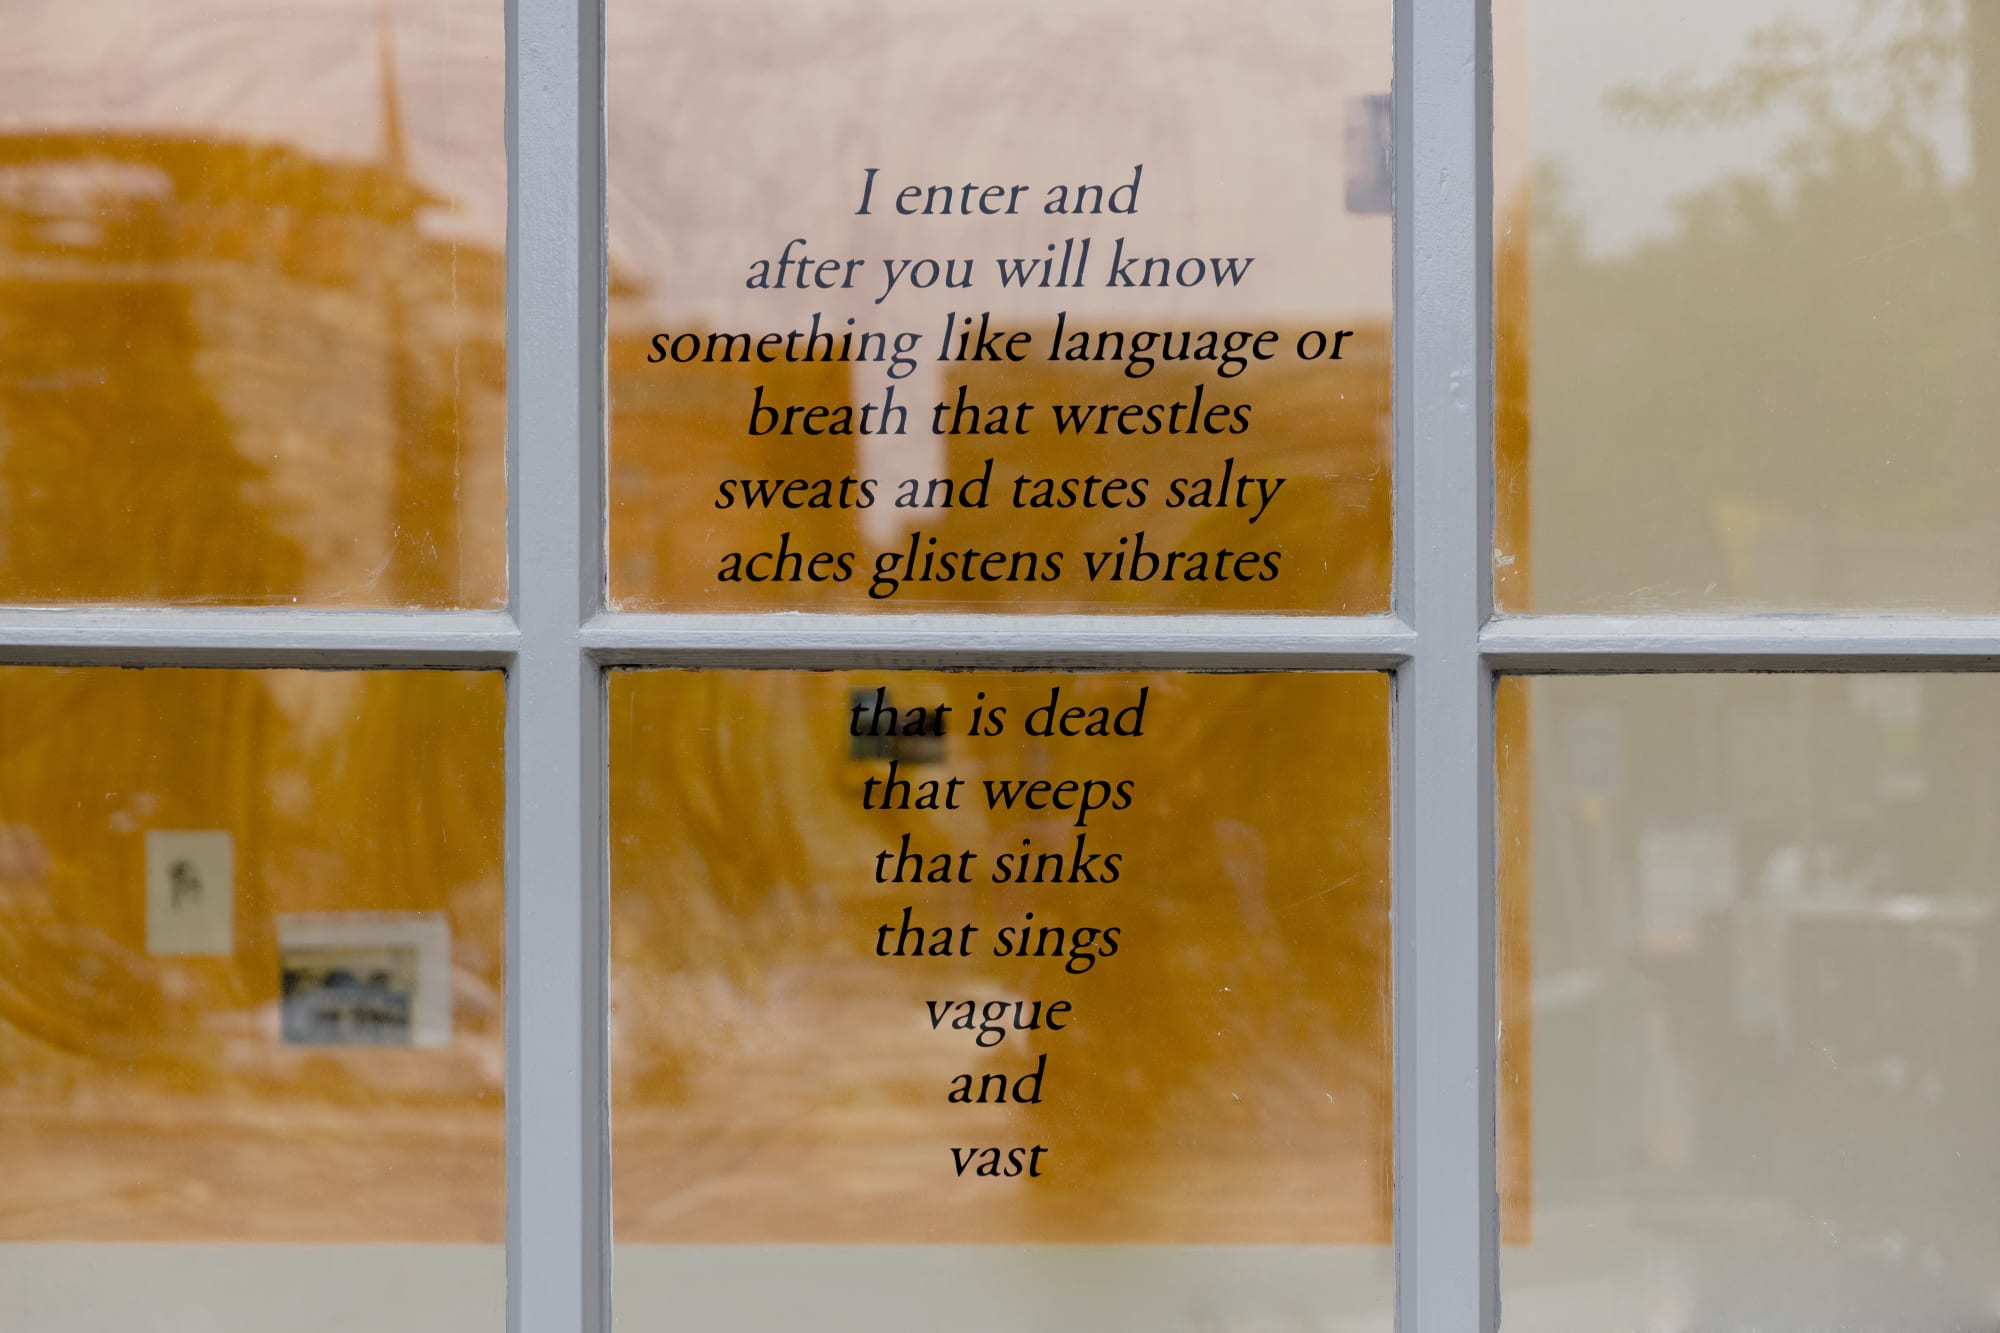 I enter and
after you will know
something like language or
breath that wrestles
sweats and tastes salty
aches glistens vibrates
that is dead
that weeps
that sinks
that sings
vague
and
vast